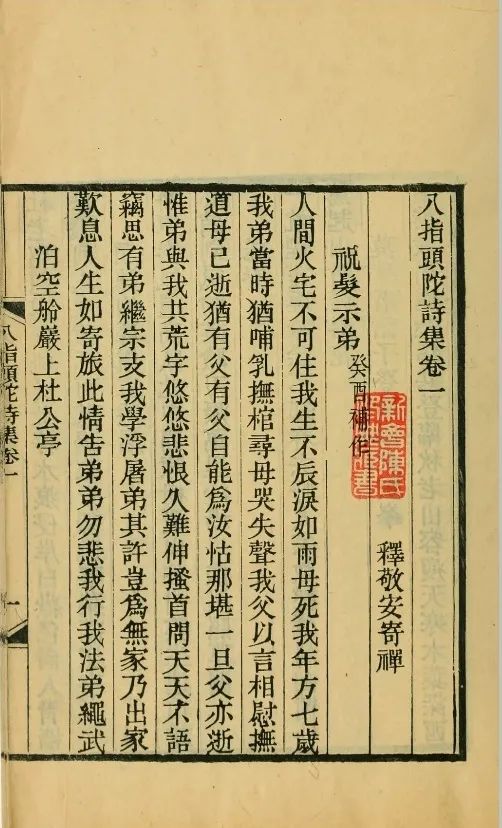 八指頭陀詩集卷一
釋敬安寄禪
祝髮示弟 癸酉補作
人間火宅不可住我生不辰淚如雨母死我年方七歲
我弟當時猶哺乳撫棺尋母哭失聲我父以言相慰撫
道母已逝猶有父有父自能爲汝怙那堪一旦父亦逝
惟弟與我共荒宇悠悠悲恨久難伸搔首問天天不語
竊思有弟繼宗支我學浮屠弟其許豈爲無家乃出家
歎息人生如寄旅此情告弟弟勿悲我行我法弟繩武
泊空舲巖上杜公亭
八指頭陀詩集卷一
一
新會陳氏